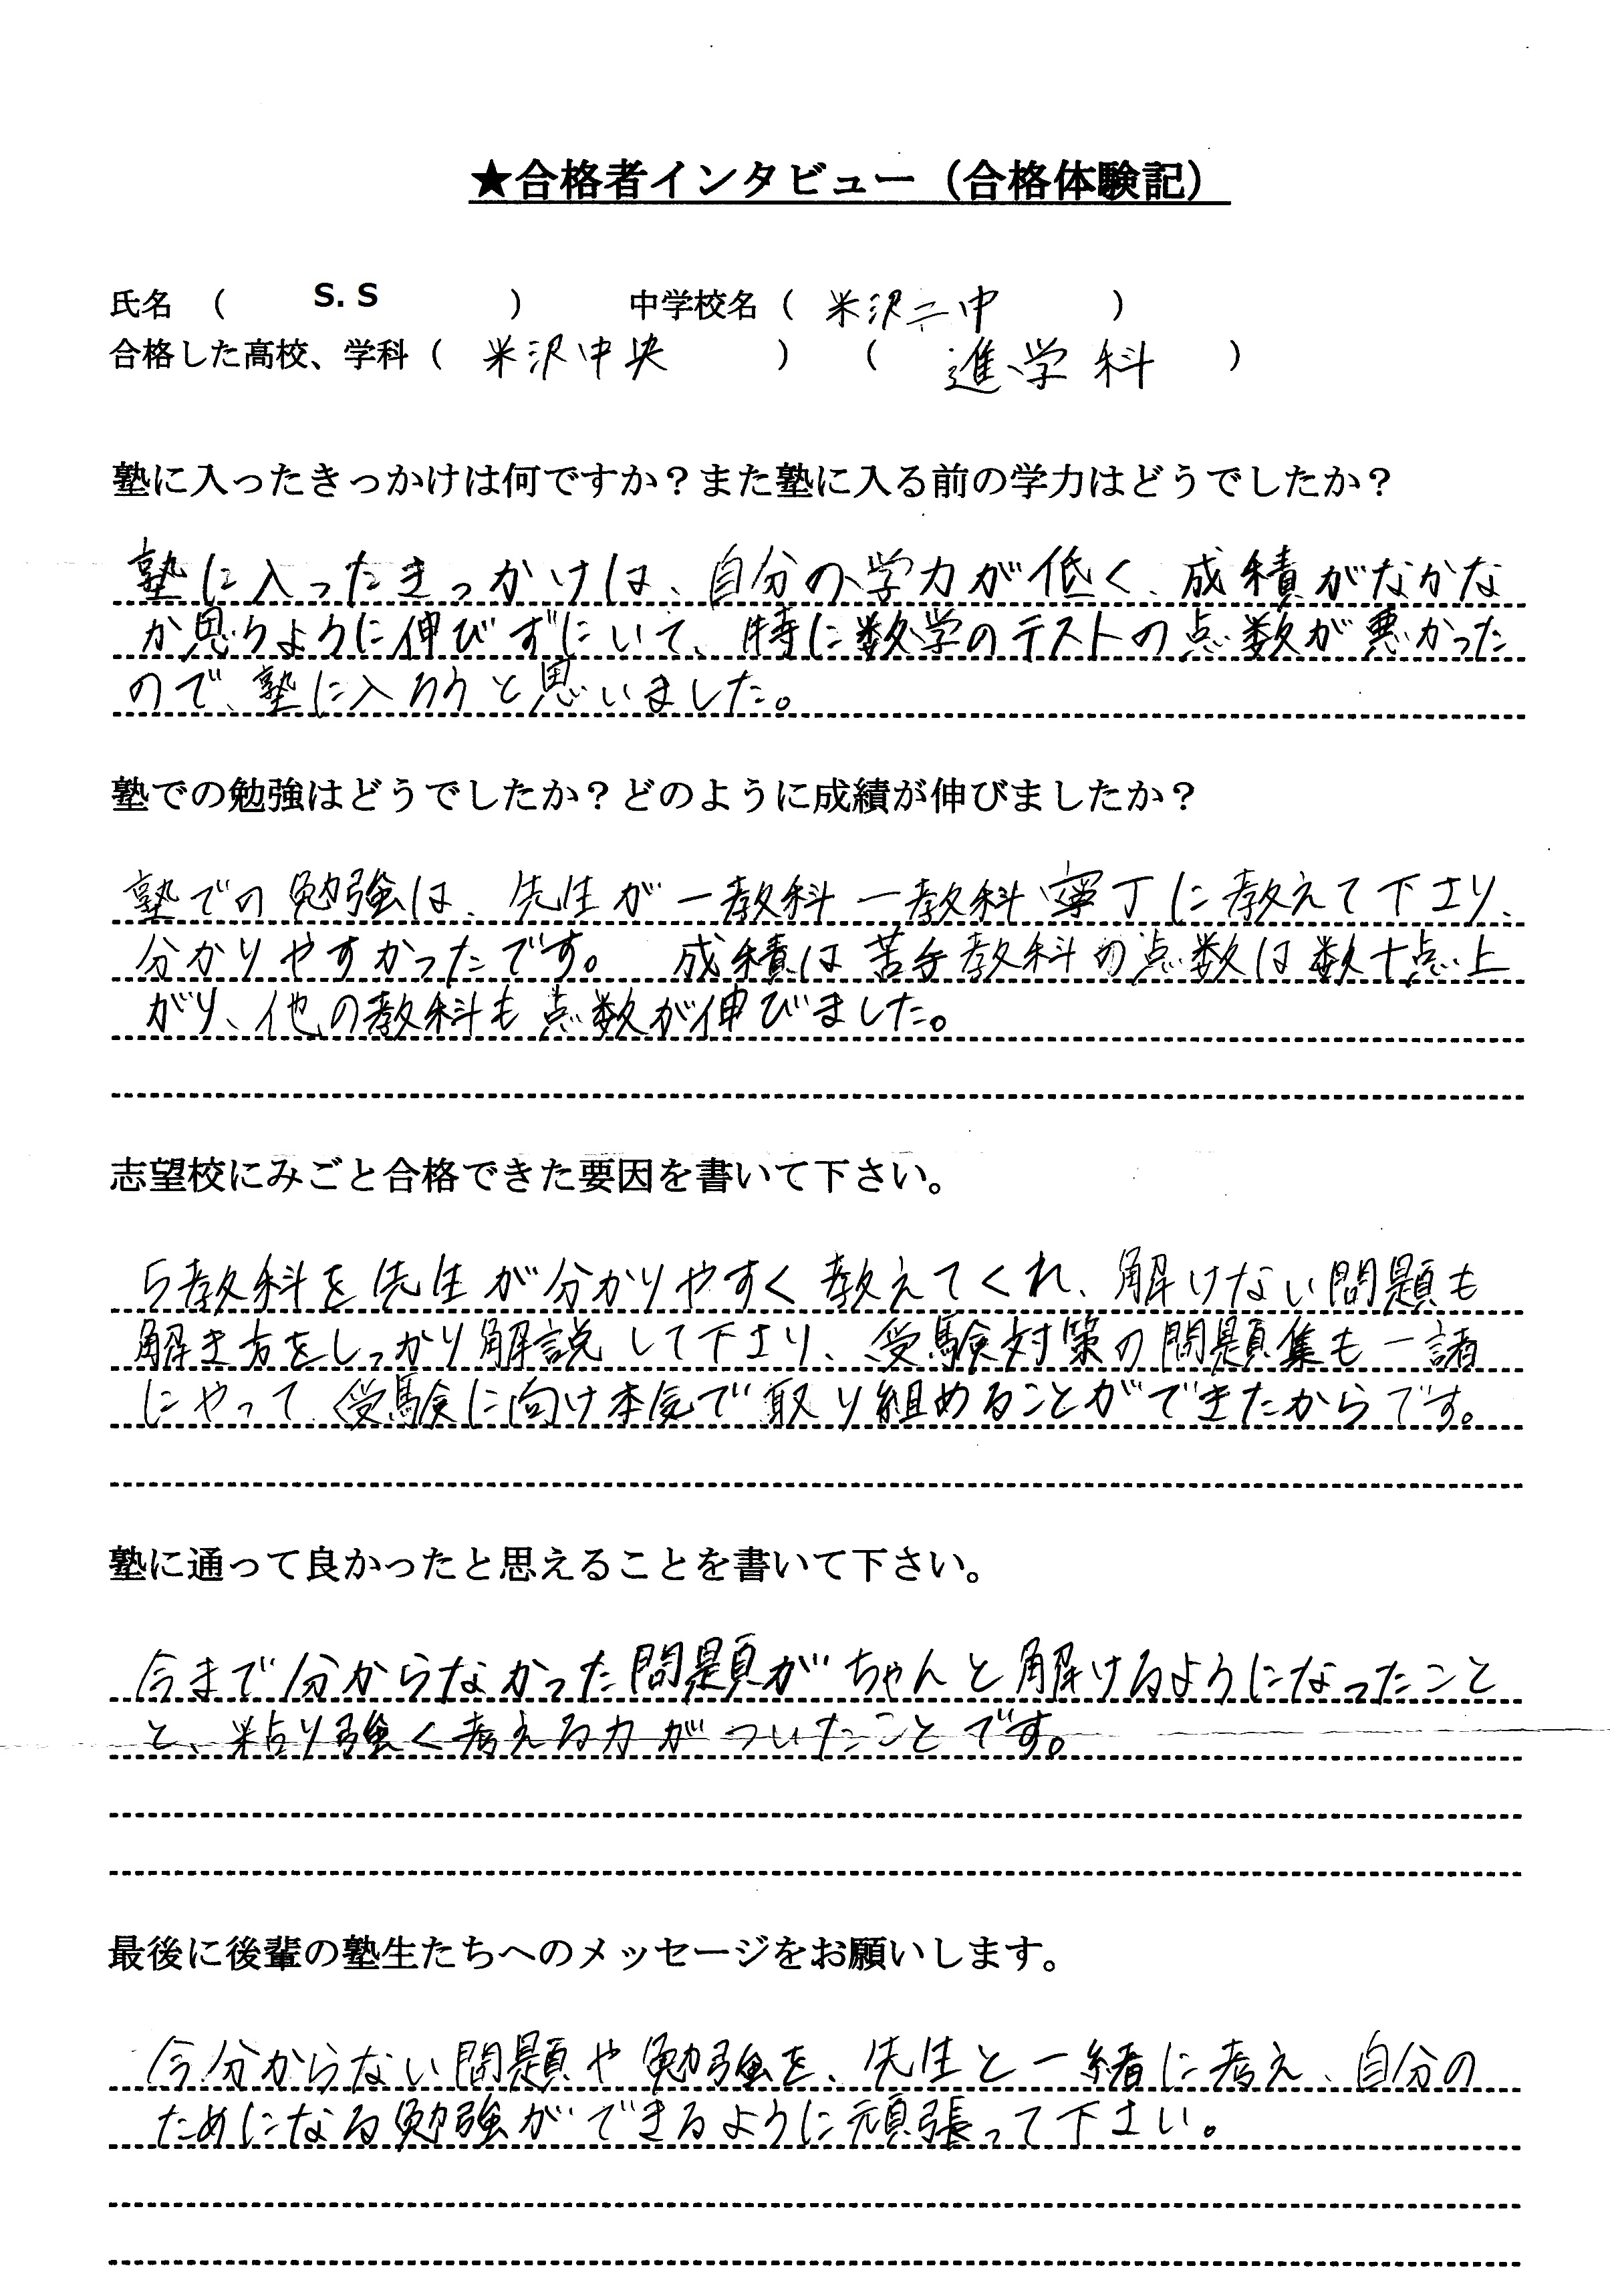 ★合格者インタビュー（合格体験記）
氏名 （ S.S ） 中学校名（ 米沢二中 ）
合格した高校、学科（ 米沢中央 ） （ 進学科 ）
塾に入ったきっかけは何ですか？また塾に入る前の学力はどうでしたか？
塾に入ったきっかけは、自分の学力が低く、成積がなかな
か思うように伸びずにいて、特に数学のテストの点数が悪かった
ので、塾に入ろうと思いました。
塾での勉強はどうでしたか？どのように成績が伸びましたか？
塾での勉強は、先生が一教科一教科寧丁に教えて下さり、
分かりやすかったです。 成積は苦手教科の点数は数十点上
がり、他の教科も点数が伸びました。
志望校にみごと合格できた要因を書いて下さい。
5教科を先生が分かりやすく教えてくれ、解けない問題も
解き方をしっかり解説して下さり、受験対策の問題集も一諸
にやって、受験に向け本気で取り組めることができたからです。
塾に通って良かったと思えることを書いて下さい。
今まで分からなかった問題がちゃんと解けるようになったこと
と、粘り強く考える力がついたことです。
最後に後輩の塾生たちへのメッセージをお願いします。
今分からない問題や勉強を、先生と一緒に考え、自分の
ためになる勉強ができるように頑張って下さい。